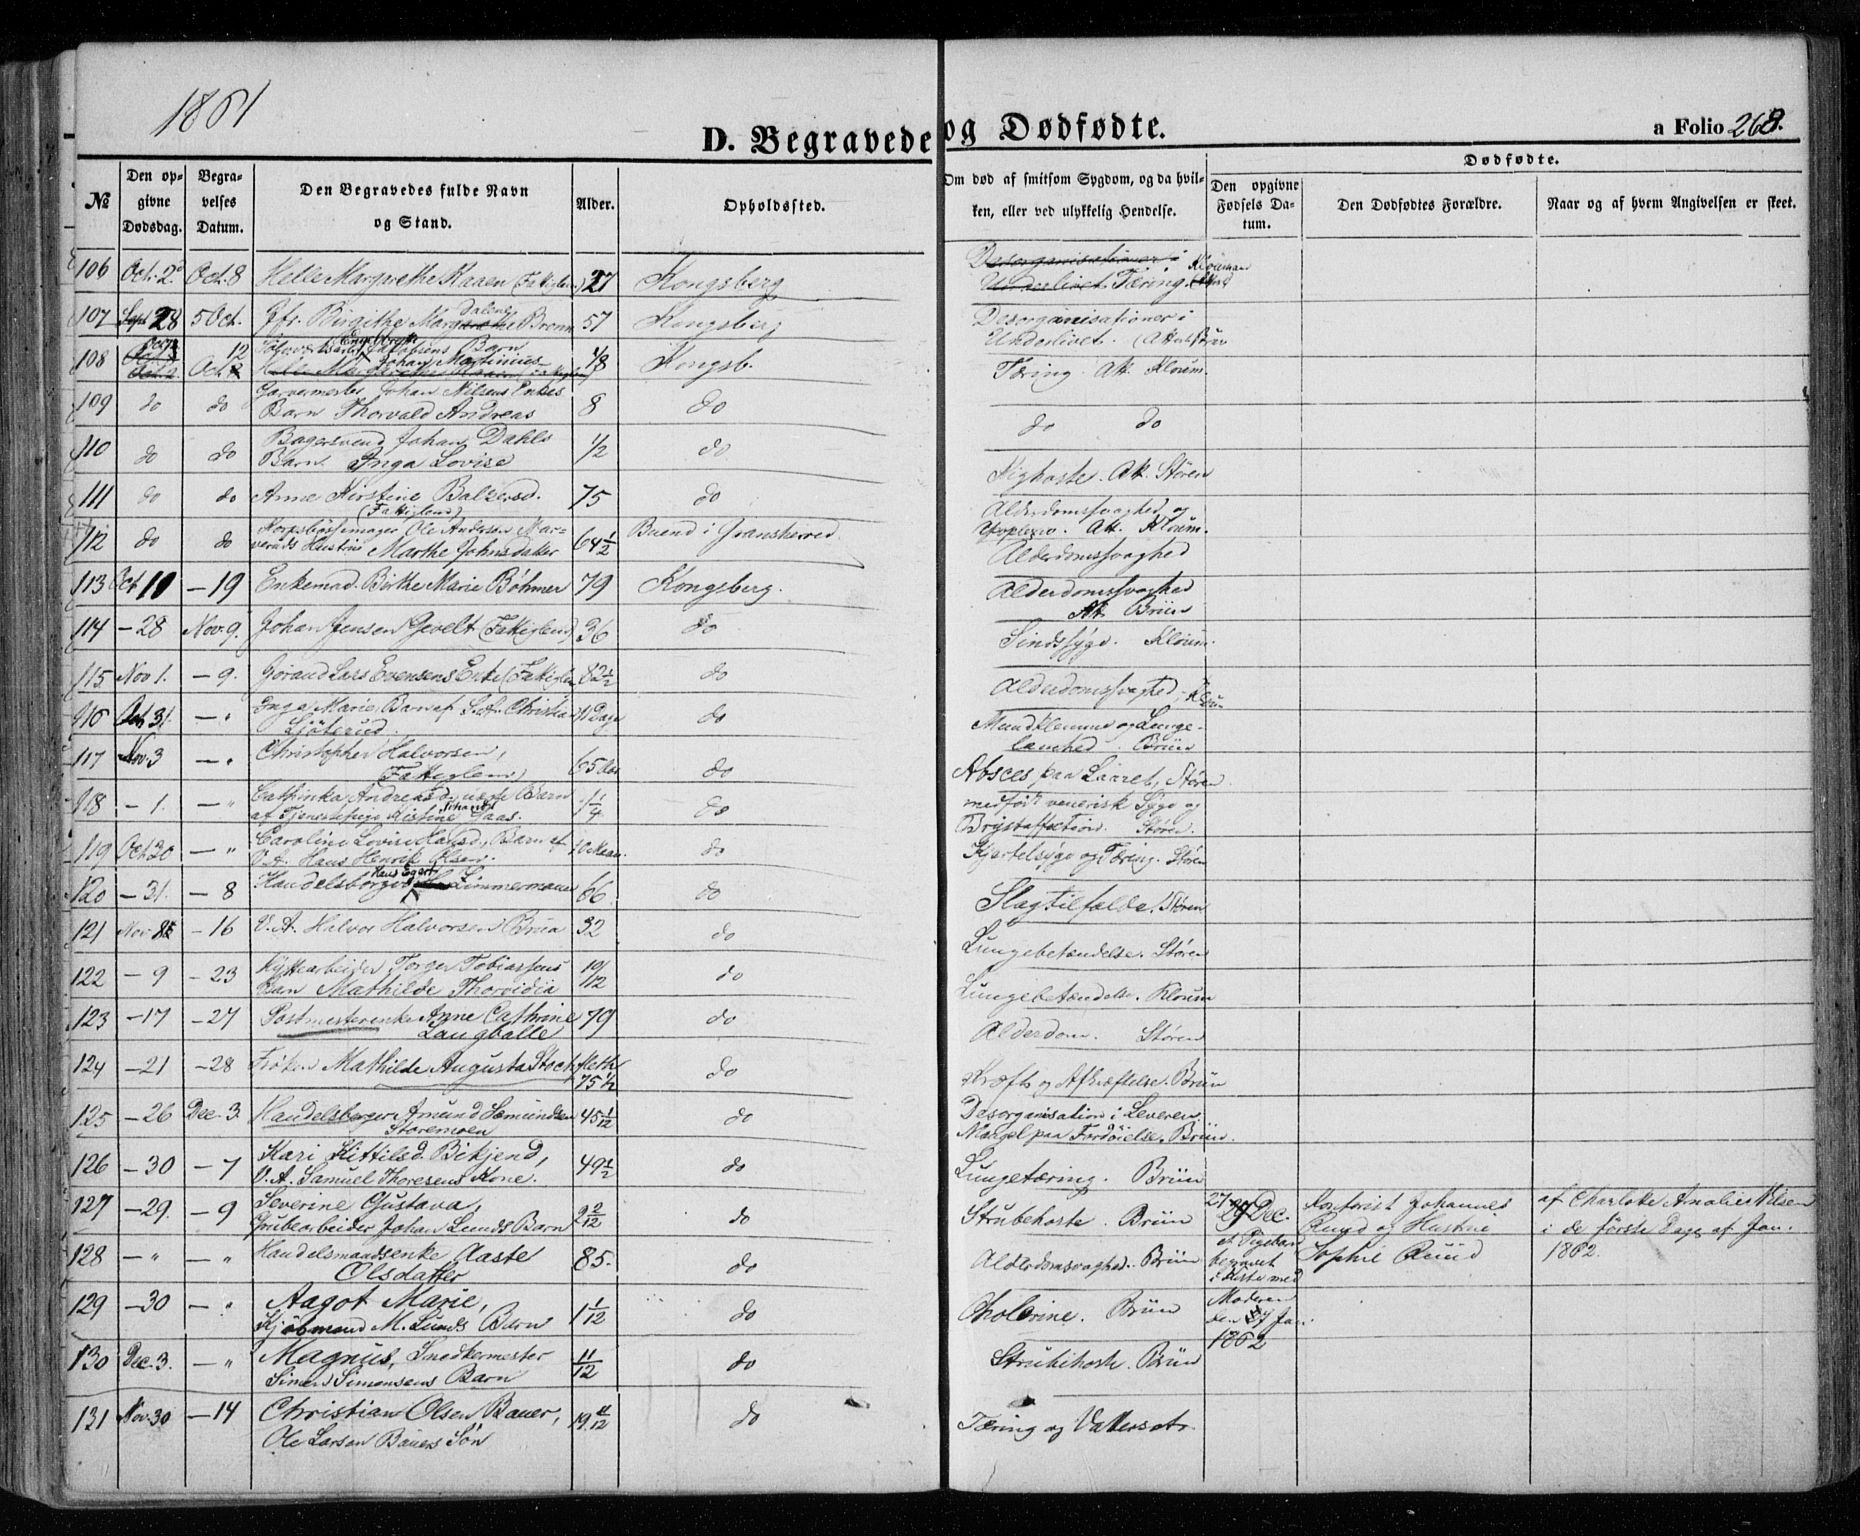 1861
D. Begravede og Dødfødte.
a Folio 268.
№
Den opgivne Dødsdag.
Begravelses Datum.
Den Begravedes fulde Navn og Stand.
Alder.
Opholdssted.
Om død af smitsom Sygdom, og da hvilken, eller ved ulykkelig Hendelse.
Dødfødte.
Den opgivne Fødsels Datum.
Den Dødfødtes Forældre.
Naar og af hvem Angivelsen er skeet.
106 Oct. 2 Oct. 8 Helle Margrethe Kaaen (Fattiglem) 27 Kongsberg Desorganisationer i Underlivet Tæring.
107 Sept 28 5 Oct. Jfr. Birgithe Magdalene 57 Kongsberg Desorganisationer i Underlivet.
108 12 Oct. Barn Johan Martinius Kongsb. Tæring. Att. Kloum.
109 do do Garvermester Johan Nilsens Enkes Barn Thorvald Andreas 8 do do do
110 do do Bagersvend Johan Dahls Barn Inga Lovise 1/2 do Kighoste. Att. Støren
111 do do Anne Kirstine Balzersd. (Fattiglem) 75 do Alderdomssvaghed og Apoplexie. Att. Kloum.
112 do do Ole Andersen Hustrue Marthe Johnsdatter 64 1/2 Boend i Gransherred Alderdomssvaghed
113 Oct 10 – 19 Enkemad. Birthe Marie Böhmer 79 Kongsberg. Alderdomssvaghed Att. Brün
114 – 28 Nov. 9. Johan Jensen Gevelt (Fattiglem) 36 do Sindssyge. Kloum.
115 Nov 1. – 9. Gørand Lars Evensens Enke (Fattiglem 82 1/2 do Alderdomssvaghed, Kloum
116 Oct 31. – " Inga Marie, Barn af Christian 11 Dage do Mundklemme og Lungelamhed. Brün
117 Nov. 3 – " Christopher Halvorsen, Fattiglem) 65 do Absces paa Laaret, Støren
118 – 1. – " Cathinka Andreasd. uægte Barn af Tjenestepige Kistine Johansd. Aas. 1 1/4 do medfødt venerisk Syge og Brystaffection. Støren.
119 Oct 30 – " Caroline Lovise Hansd., Barn af Hans Henrik Olsen. 10 Maan. do Kjertelsyge og Tæring. Støren
120 – 31. – 8 Handelsborger Hans Egert Zimmermann 66 do Slagtilfælde. Støren
121 Nov. 8 – 16 Halvor Halvorsen Brua 32 do Lungebetændelse. Støren
122 – 9 – 23 Hyttearbeider Torger Tobiassens Barn Mathilde Thorvidia 10/12 do Lungebetændelse. Kloum
123 – 17 – 27 Postmesterenke Anne Cathrine Langballe 79 do Alderdom. Støren
124 – 21 – 28 Frøken Mathilde Augusta Stockfleth 75 1/2 do Kræft og Afkræftelse. Brün
125 – 26 Dec. 3. Handelsborger Amund Sæmundsen Storemoen 45 1/12 do Desorganisation i Leveren, Mangel paa Fordøielse. Brün.
126 – 30 – 7 Kari Kittilsd. Bikjend, Samuel Thoresens Kone. 49 1/2 do Lungetæring. Brün
127 – 29. – 9 Severine Gustava, Grubearbeider Johan Lunds Barn 2 2/12 do Strubehoste. Brün
27 Dec. et Pigebarn begravet i Kiste med Moderen den Jan. 1862
Kontorist Johannes Ruud og Hustrue Sophie Ruud
af Charlotte Amalie Nilsen i de første Dage af Jan. 1862.
128 – " – " Handelsmandsenke Aaste Olsdatter 85. do Alderdomssvaghed. Brün
129 – 30 – " Aagot Marie, Kjøbmand M. Lunds Barn 1 1/12 do Cholerine. Brün
130 Dec. 3. – " Magnus, Snedkermester Simen Simensens Barn 11/12 do Strubehoste. Brün
131 Nov. 30 – 14 Christian Olsen Bauer, Ole Larsen Bauers Søn 19 11/12 do Tæring og Vattersot.